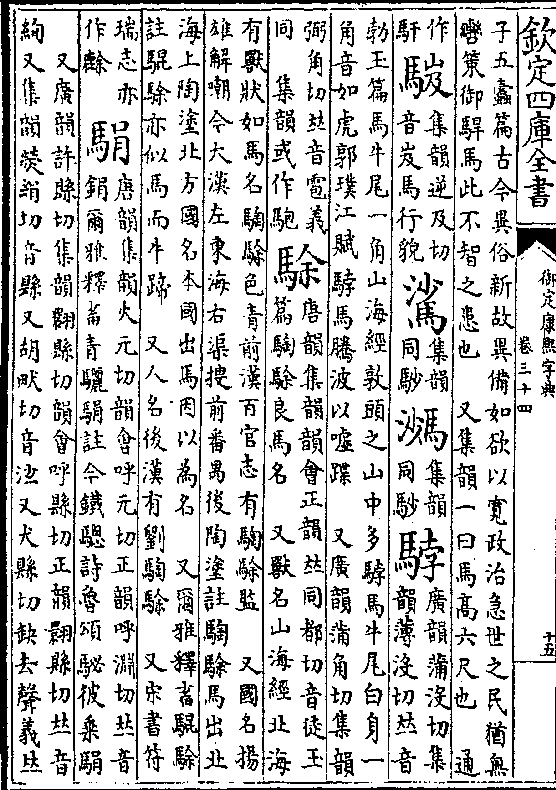 欽定四庫全書
御定康熙字典
卷三十四
十五
子五蠹篇古今異俗新故異備如欲以寛政治急世之民猶無
轡策御駻馬此不智之患也 又集韻一曰馬髙六尺也 通
作
馯
集韻逆及切
音岌馬行貌
集韻
同
集韻
同
䮀
廣韻蒲没切集
韻薄没切𠀤音
勃玉篇馬牛尾一角山海經敦頭之山中多䮀馬牛尾白身一
角音如虎郭璞江賦䮀馬騰波以嘘蹀 又廣韻蒲角切集韻
弼角切𠀤音雹義
同 集韻或作駂
駼
唐韻集韻韻會正韻𠀤同都切音徒玉
篇騊駼良馬名 又獸名山海經北海
有獸狀如馬名騊駼色青前漢百官志有騊駼監 又國名揚
雄解嘲今大漢左東海右渠搜前番禺後陶塗註騊駼馬出北
海上陶塗北方國名本國出馬因以為名 又爾雅釋畜騉駼
註騉駼亦似馬而牛蹏 又人名後漢有劉騊駼 又宋書符
瑞志亦
作
駽
唐韻集韻火元切韻會呼元切正韻呼淵切𠀤音
鋗爾雅釋畜青驪駽註今鐵騘詩魯頌駜彼乗駽
又廣韻許縣切集韻翾縣切韻會呼縣切正韻翾縣切𠀤音
絢又集韻熒絹切音縣又胡畎切音泫又犬縣切缺去聲義𠀤